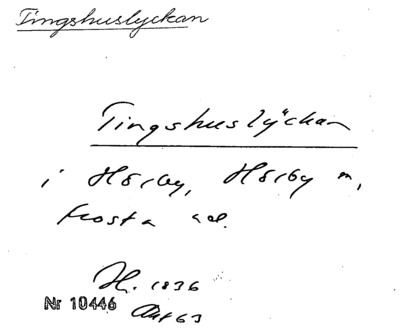 Tingshuslyckan
Tingshuslyckan
i Hörby, Hörby m,
Frosta hd.
H. 1836
Nr 10446
Akt 63